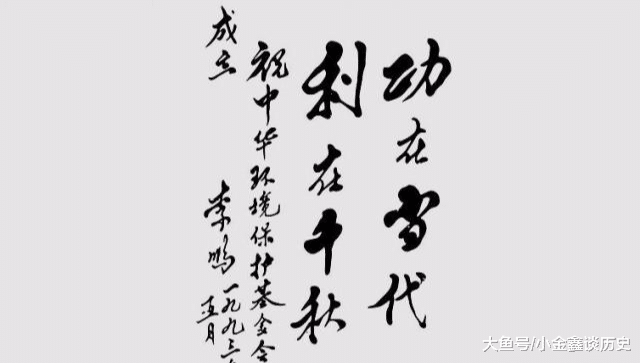 功在当代
利在千秋
祝中华环境保护基金会
成立
李鹏 一九九三
五月
大鱼号/小金鑫谈历史